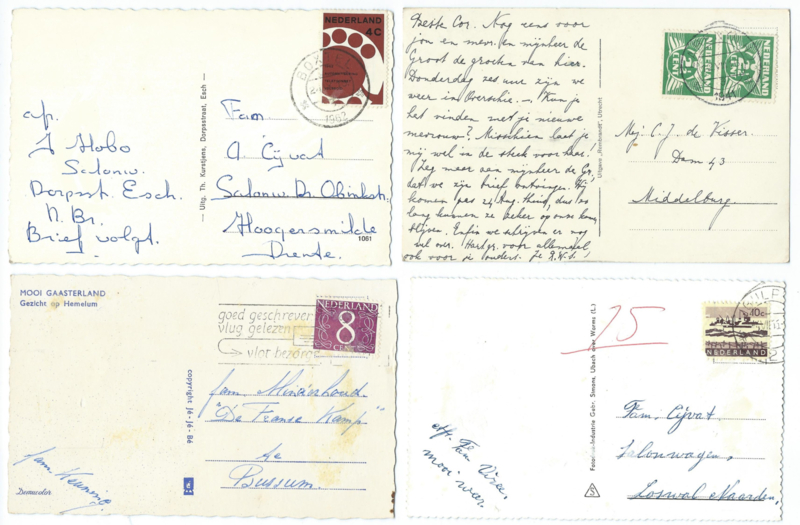 NEDERLAND
4C
BOXTEL
1962
afz.
J Hobo
Salonw.
Dorpsstr. Esch.
N. Br.
Brief volgt.
— Uitg. Th. Kurstjens, Dorpsstraat, Esch —
Fam
A Cijvat
Salonw. Dr.
Hoogersmilde
Drente.
1061
Beste Cor. Nog eens voor
jou en mevr. en mijnheer de
Groot de groeten van hier.
Donderdag zes uur zijn we
weer in Overschie. — Kun je
het vinden met je nieuwe
mevrouw? Misschien laat je
mij wel in de steek voor haar.
Zeg maar aan mijnheer de Gr.
dat we zijn brief ontvingen. Wij
komen pas 24 Aug. thuis, dus zo
lang kunnen ze zeker op ons kan.
blijven. Enfin we schrijven er nog
wel over. Hartgr. voor allemaal
ook voor je ouders.
NEDERLAND
NEDERLAND
Mej. C. J. de Visser.
Dam 43
Middelburg
MOOI GAASTERLAND
Gezicht op Hemelum
goed geschreven
vlug gelezen
vlot bezorgd
NEDERLAND
8
CENT
copyright
fam. Minderhoud
"De Franse Kamp"
te
Bussum.
fam
15
10c
NEDERLAND
Fotorkie-Industrie Gebr. Simons, Ubach over Worms (L.)
S
Fam. Cijvat.
Salonwagen.
Loswal Naarden.
afz. Fam
mooi war.